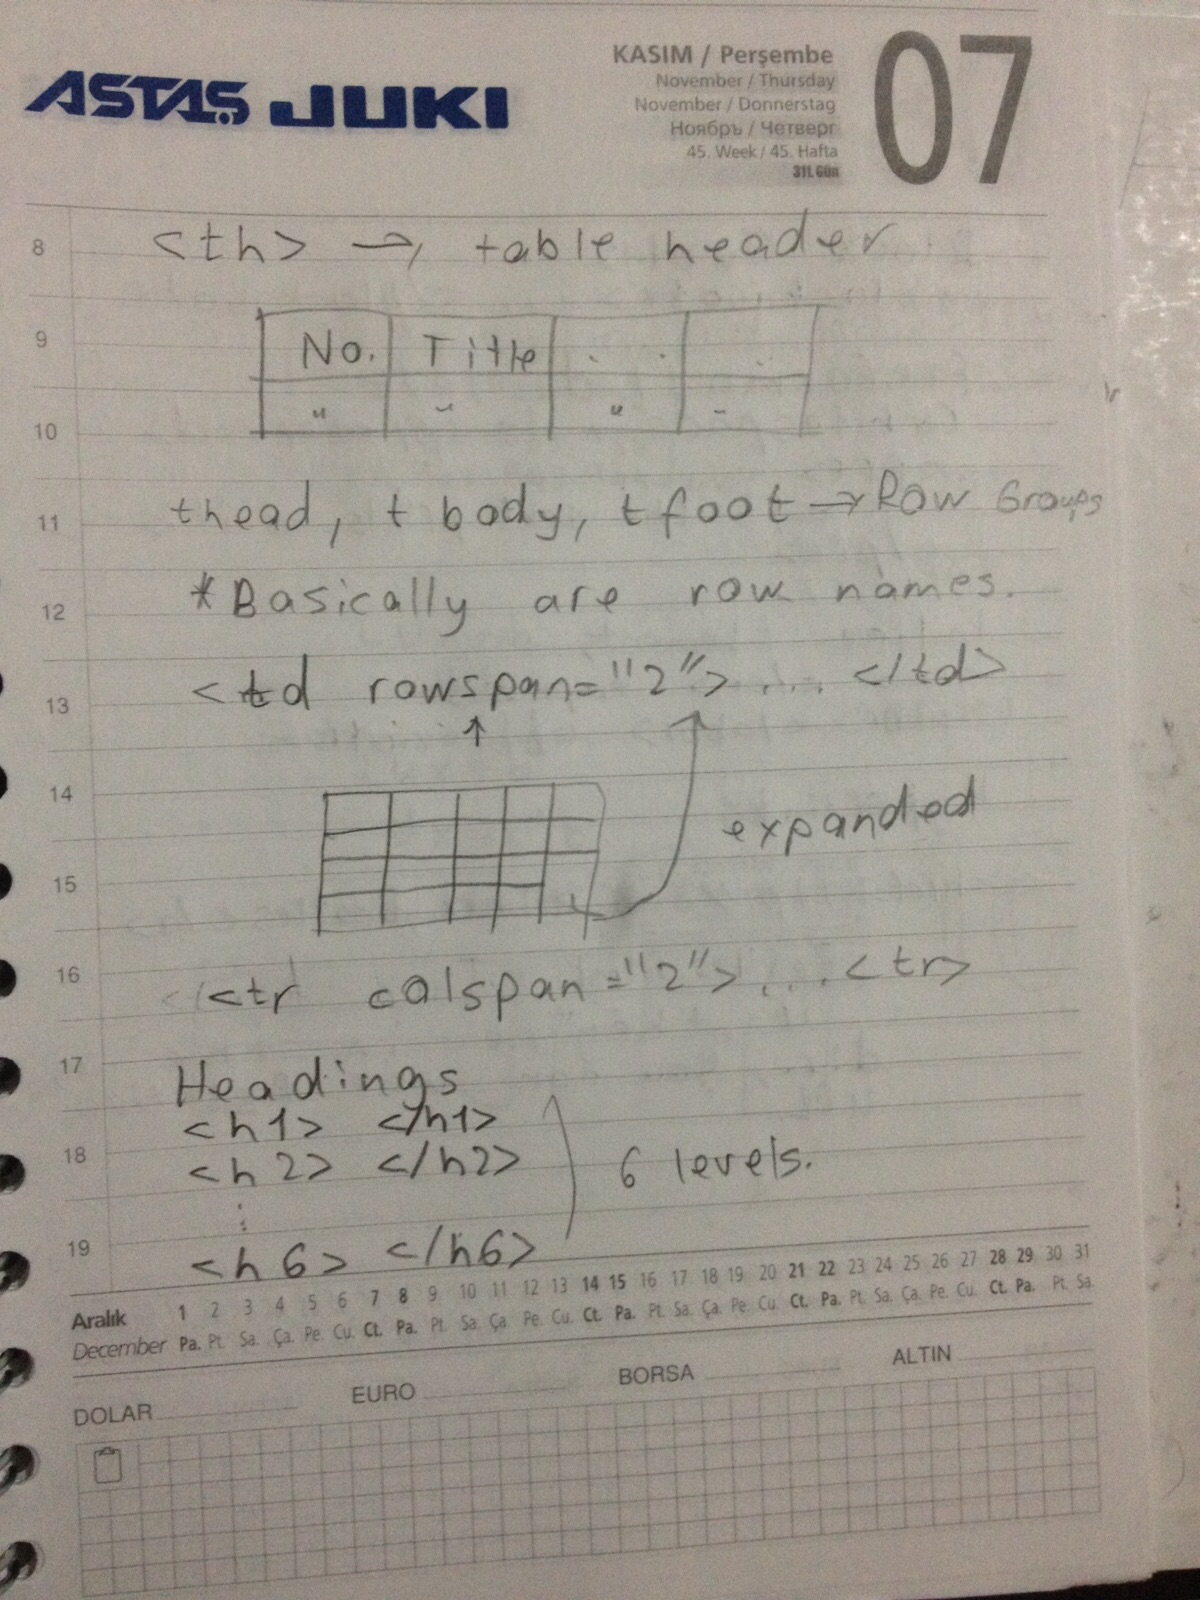 ASTAŞ JUKI
KASIM / Perşembe
November / Thursday
November / Donnerstag
Ноябрь / Четверг
45. Week / 45. Hafta
311. Gün
07
8 <th> → table header
9 No. Title . . .
10 " " " "
11 thead, t body, t foot → Row Groups
12 *Basically are row names.
13 <td rowspan="2"> .... </td>
↑
14
expanded
15
16 <tr colspan="2"> .... <tr>
17 Headings
<h1> </h1>
18 <h2> </h2> 6 levels.
⋮
19 <h6> </h6>
Aralık 1 2 3 4 5 6 7 8 9 10 11 12 13 14 15 16 17 18 19 20 21 22 23 24 25 26 27 28 29 30 31
December Pa. Pt. Sa. Ça. Pe. Cu. Ct. Pa. Pt. Sa. Ça. Pe. Cu. Ct. Pa. Pt. Sa. Ça. Pe. Cu. Ct. Pa. Pt. Sa. Ça. Pe. Cu. Ct. Pa. Pt. Sa.
DOLAR EURO BORSA ALTIN